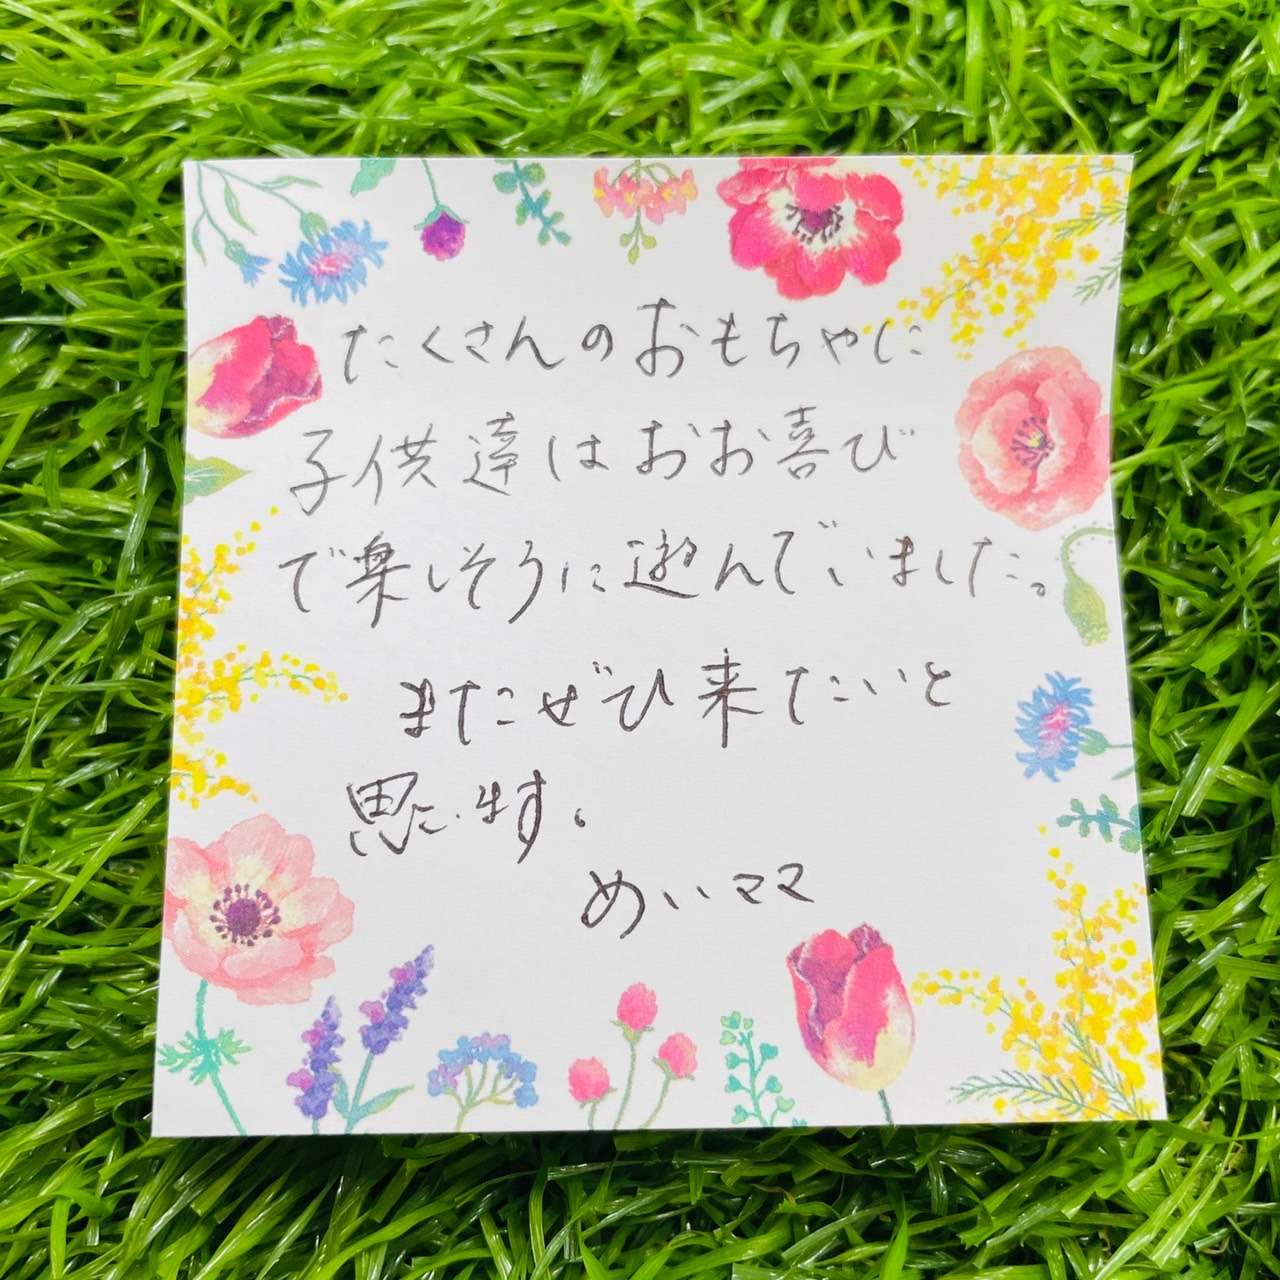 たくさんのおもちゃに
子供達はおお喜び
で楽しそうに遊んでいました。
またぜひ来たいと
思います。
めいママ